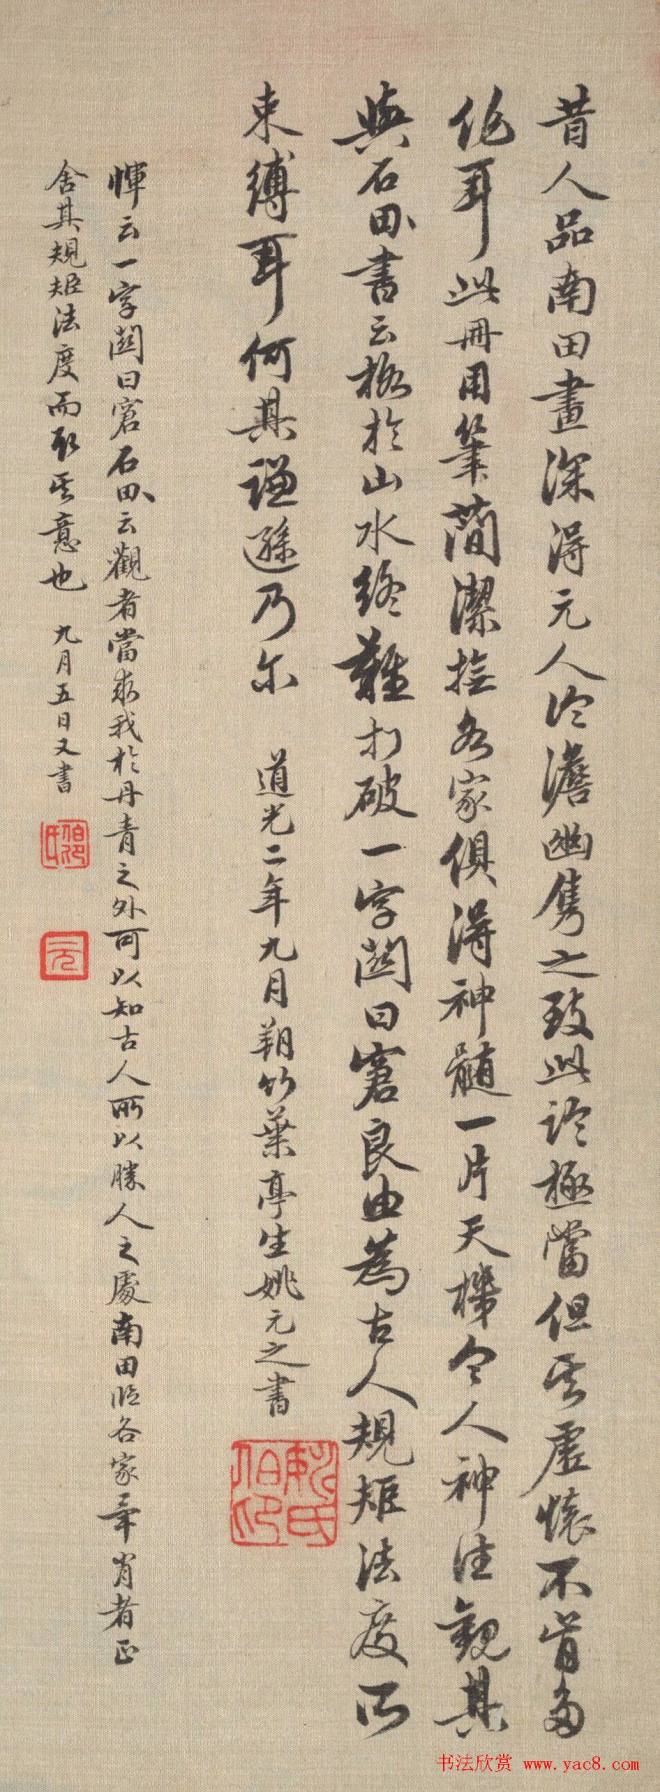 昔人品南田畫深得元人冷澹幽雋之致此論極當但其虛懷不肯多
耳此冊用筆簡潔撫各家俱得神髓一片天機令人神往觀其
與石谷書云格於山水終難打破一字關曰窘良由為古人規矩法度所
束縛耳何其謙遜乃尔 道光二年九月朔竹葉亭生姚元之書
惲云一字關曰窘石谷云觀者當求我於丹青之外可以知古人所以勝人之處南田臨各家肖者正
舍其規矩法度而取其意也 九月五日又書
書法欣赏 www.yac8.com